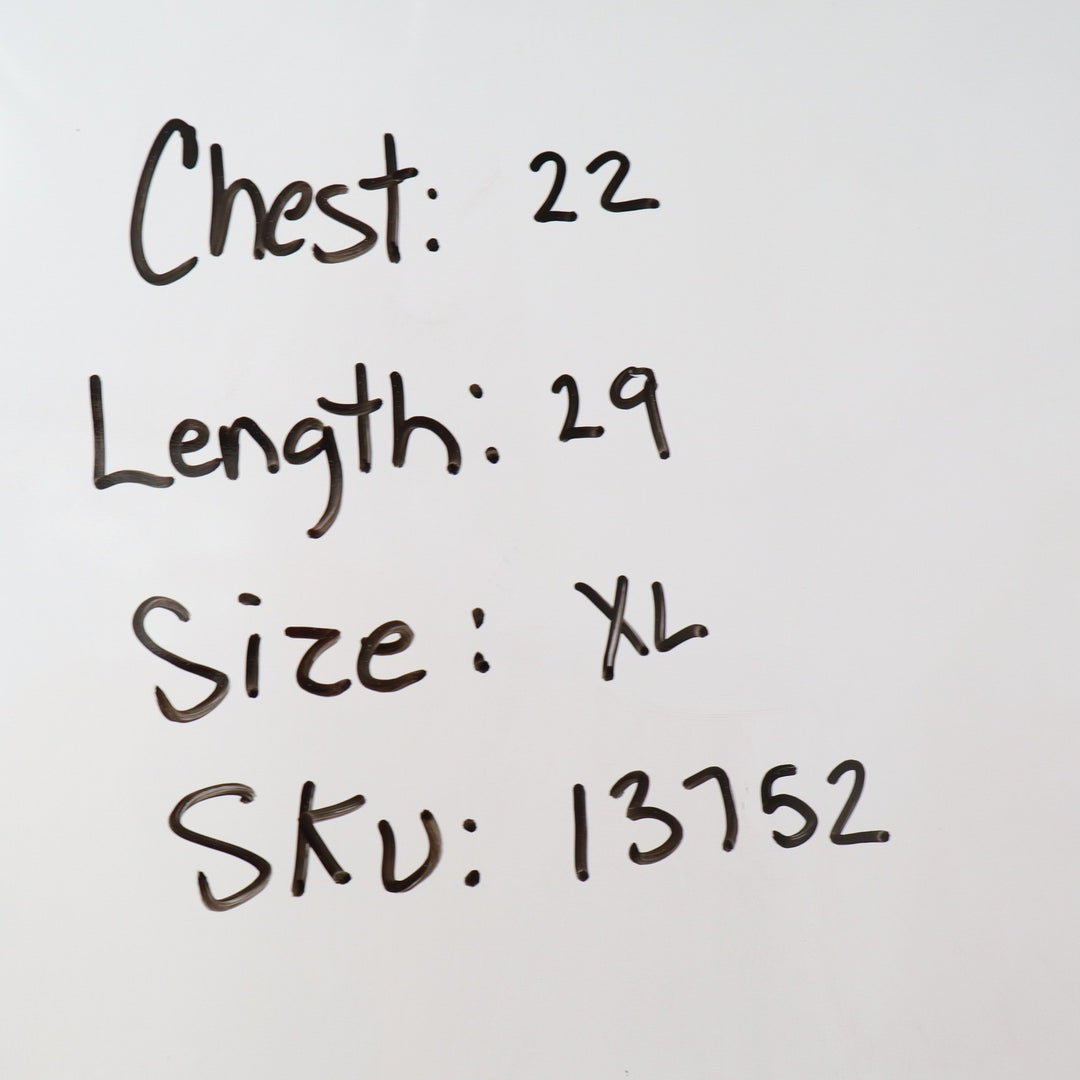 Chest: 22
Length: 29
Size: XL
SKU: 13752